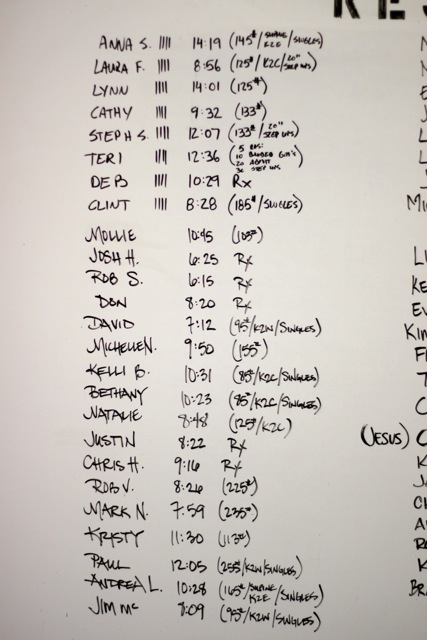 RES
ANNA S. |||| 14:19 (145#/ K2E/SINGLES)
LAURA F. |||| 8:56 (125#/K2C/20" STEP UPS)
LYNN |||| 14:01 (125#)
CATHY |||| 9:32 (133#)
STEPH S. |||| 12:07 (133#/20" STEP UPS)
TERI |||| 12:36 (5 10 BANDED 20 30 STEP UPS)
DEB |||| 10:29 Rx
CLINT |||| 8:28 (185#/SINGLES)
MOLLIE 10:45 (103#)
JOSH H. 6:25 Rx
ROB S. 6:15 Rx
DON 8:20 Rx
DAVID 7:12 (95#/K2W/SINGLES)
MICHELLE N. 9:50 (155#)
KELLI B. 10:31 (85#/K2C/SINGLES)
BETHANY 10:23 (85#/K2C/SINGLES)
NATALIE 8:48 (125#/K2C)
JUSTIN 8:22 Rx
(JESUS)
CHRIS H. 9:16 Rx
ROB V. 8:26 (225#)
MARK N. 7:59 (235#)
KRISTY 11:30 (113#)
PAUL 12:05 (255#/K2W/SINGLES)
ANDREA L. 10:28 (165#/ K2E/SINGLES)
JIM MC :09 (95#/K2W/SINGLES)